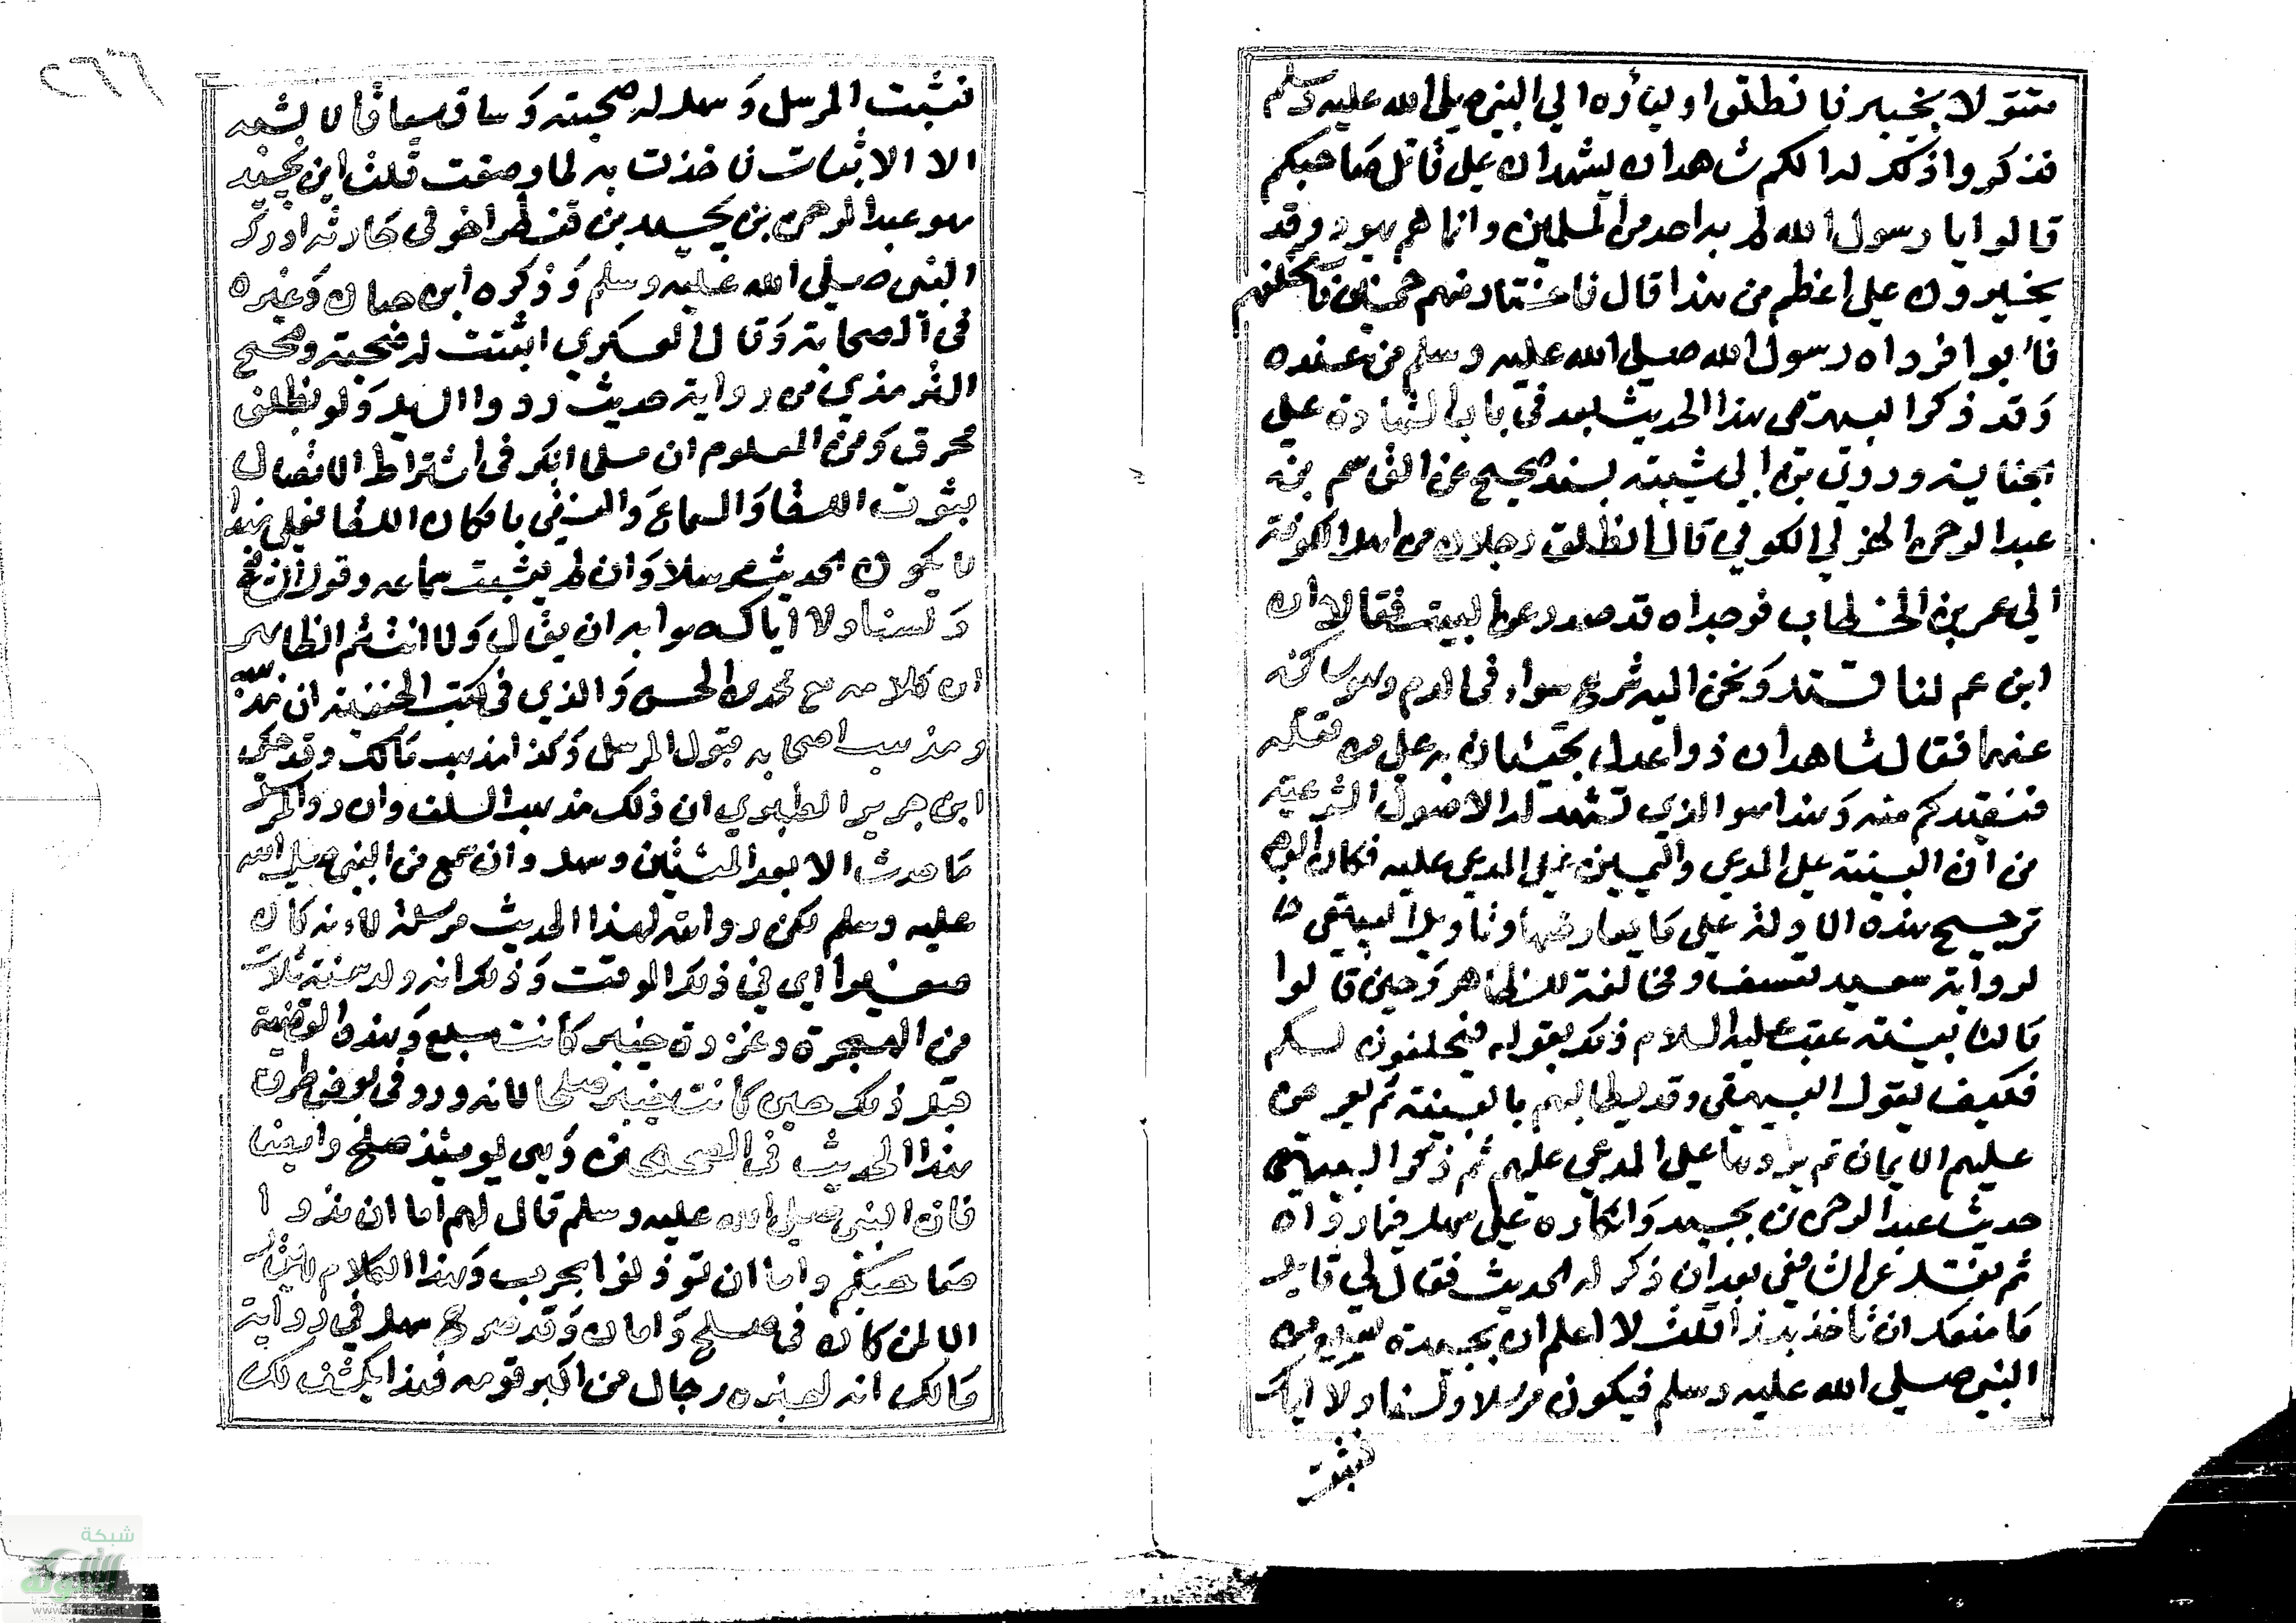 مقتولا بخيبر فانطلق اولياؤه الي النبي صلي الله عليه وسلم
فذكروا ذلك له الكم شاهدان يشهدان علي قاتل صاحبكم
قالوا يا رسول الله لم يه احد من المسلمين وانما هم يهود وقد
يجتروون علي اعظم من هذا قال فاختاروا منهم خمسين فاستحلفهم
فابوا فوداه رسول الله صلي الله عليه وسلم من عنده
وقد ذكر البيهقي هذا الحديث بعد في باب الشهادة علي
الجناية وروي بن ابي شيبة بسند صحيح عن القاسم بن
عبد الرحمن الهذلي الكوفي قال انطلق رجلان من اهل الكوفة
الي عمر بن الخطاب فوجداه قد صدر عن البيت فقالا ان
ابن عم لنا قتل ونحن اليه شرع سواء في الدم وهو ساكت
عنهما فقال شاهدان ذوا عدل يجيئان به علي من قتله
فنقيدكم منه وهذا هو الذي تشهد له الاصول الشرعية
من ان البينة علي المدعي واليمين علي المدعي عليه فكان الوجه
ترجيح هذه الادلة علي ما يعارضها وتاويل البيهقي
لرواية سعيد تعسف ومخالفة للظاهر وحين قالوا
مالنا بينة عقب عليه السلام ذلك بقوله فيحلفون لكم
فكيف يقول البيهقي وقد يطالبهم بالبينة ثم يعرض
عليهم الايمان ثم يردها علي المدعي عليهم ثم ذكر البيهقي
حديث عبد الرحمن بن بجيد وانكاره علي سهل فيما رواه
ثم نقل عن الشافعي بعد ان ذكر له الحديث فقال لي قايل
ما منعك ان تاخذ بهذا قلت لا اعلم ان بجيد سمع من
النبي صلي الله عليه وسلم فيكون مرسلا ولسنا ولا اياك
نثبت
٢٦٦
نثبت المرسل وسهل له صحبة وساق سياقا لا يشبه
الا الاثبات فاخذت به لما وصفت قلت ابن بجيد
هو عبد الرحمن بن بجيد بن قيظي اخو بني حارثة ادرك
النبي صلي الله عليه وسلم وذكره ابن حبان وغيره
في الصحابة وقال العسكري اثبتت له صحبة وصحح
الترمذي من رواية حديث ردوا السايل ولو بظلف
محرق ومن المعلوم ان مسلما انكر في اشتراط الاتصال
بثوت اللقا والسماع واكتفي بامكان اللقا فعلي هذا
لا يكون الحديث مرسلا وان لم يثبت سماعه وقول الشافعي
ولسنا ولا اياك صوابه ان يقال ولا انت ثم الظاهر
ان كلامه مع محمد بن الحسن والذي في كتب الحنفية ان مذهبه
ومذهب اصحابه قبول المرسل وكذا مذهب مالك وقد حكي
ابن جرير الطبري ان ذلك مذهب السلف وان رد المرسل
ما حدث الا بعد المئتين وسهل وان سمع من النبي صلي الله
عليه وسلم لكن روايته لهذا الحديث مرسلة لانه كان
صغيرا اي في ذلك الوقت وذلك انه ولد سنة ثلاث
من الهجرة وغزوة خيبر كانت سنة سبع وهذه القضية
قبل ذلك حين كانت خيبر صلحا لانه ورد في بعض طرق
هذا الحديث في الصحيحين وهي يومئذ صلح وايضا
فان النبي صلي الله عليه وسلم قال لهم اما ان تدوا
صاحبكم واما ان توذنوا بحرب وهذا الكلام لا يقال
الا لمن كان في صلح وامان وقد صرح سهل في رواية
مالك انه اخبره رجال من اكبر قومه فهذا يكشف لك
شبكة
الألوكة